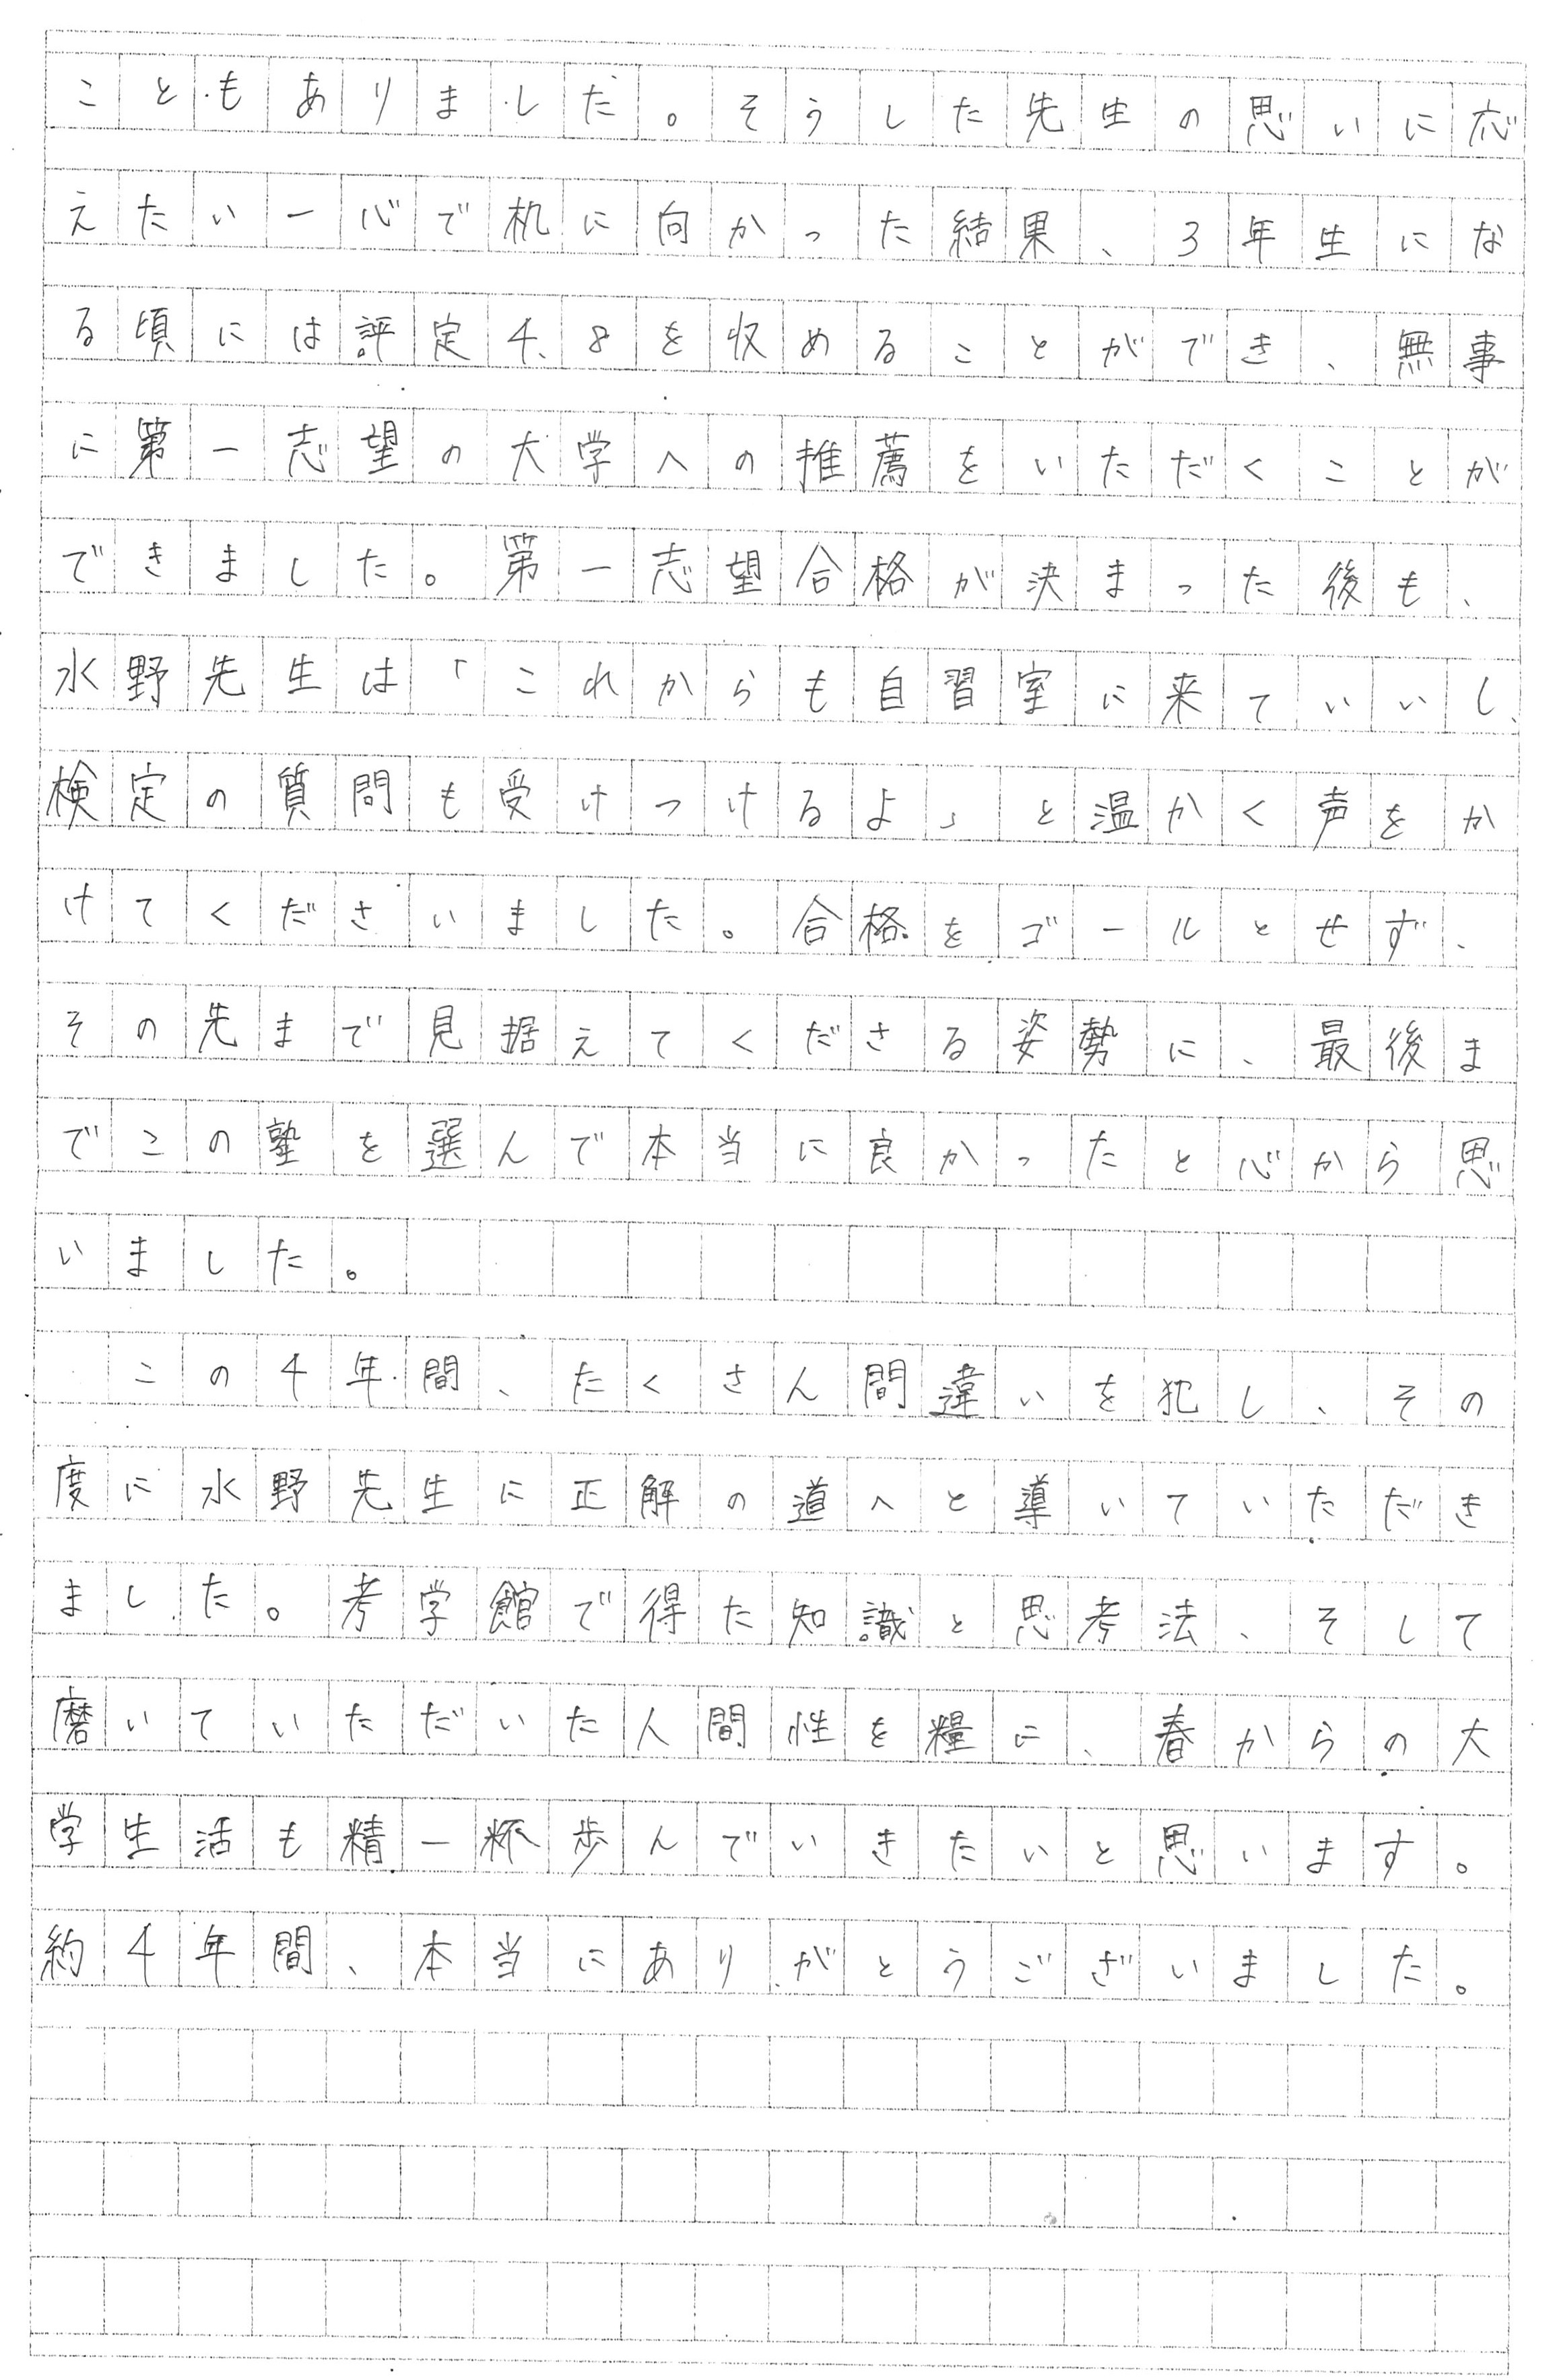 こともありました。そうした先生の思いに応
えたい一心で机に向かった結果、3年生にな
る頃には評定4.8を収めることができ、無事
に第一志望の大学への推薦をいただくことが
できました。第一志望合格が決まった後も、
水野先生は「これからも自習室に来ていいし、
検定の質問も受けつけるよ」と温かく声をか
けてくださいました。合格をゴールとせず、
その先まで見据えてくださる姿勢に、最後ま
でこの塾を選んで本当に良かったと心から思
いました。
この4年間、たくさん間違いを犯し、その
度に水野先生に正解の道へと導いていただき
ました。考学館で得た知識と思考法、そして
磨いていただいた人間性を糧に、春からの大
学生活も精一杯歩んでいきたいと思います。
約4年間、本当にありがとうございました。